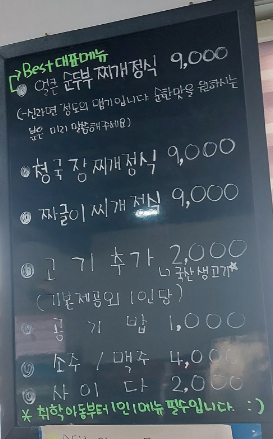 Best 대표메뉴
얼큰 순두부 찌개정식 9,000
(-신라면 정도의 맵기입니다 순한맛을 원하시는
분은 미리 말씀해주세요)
청국장찌개정식 9,000
짜글이찌개정식 9,000
고기추가 2,000
↳국산생고기☆
(기본제공외 1인당)
공기밥 1,000
소주/맥주 4,000
사이다 2,000
* 취학아동부터 1인 1메뉴 필수입니다. :)